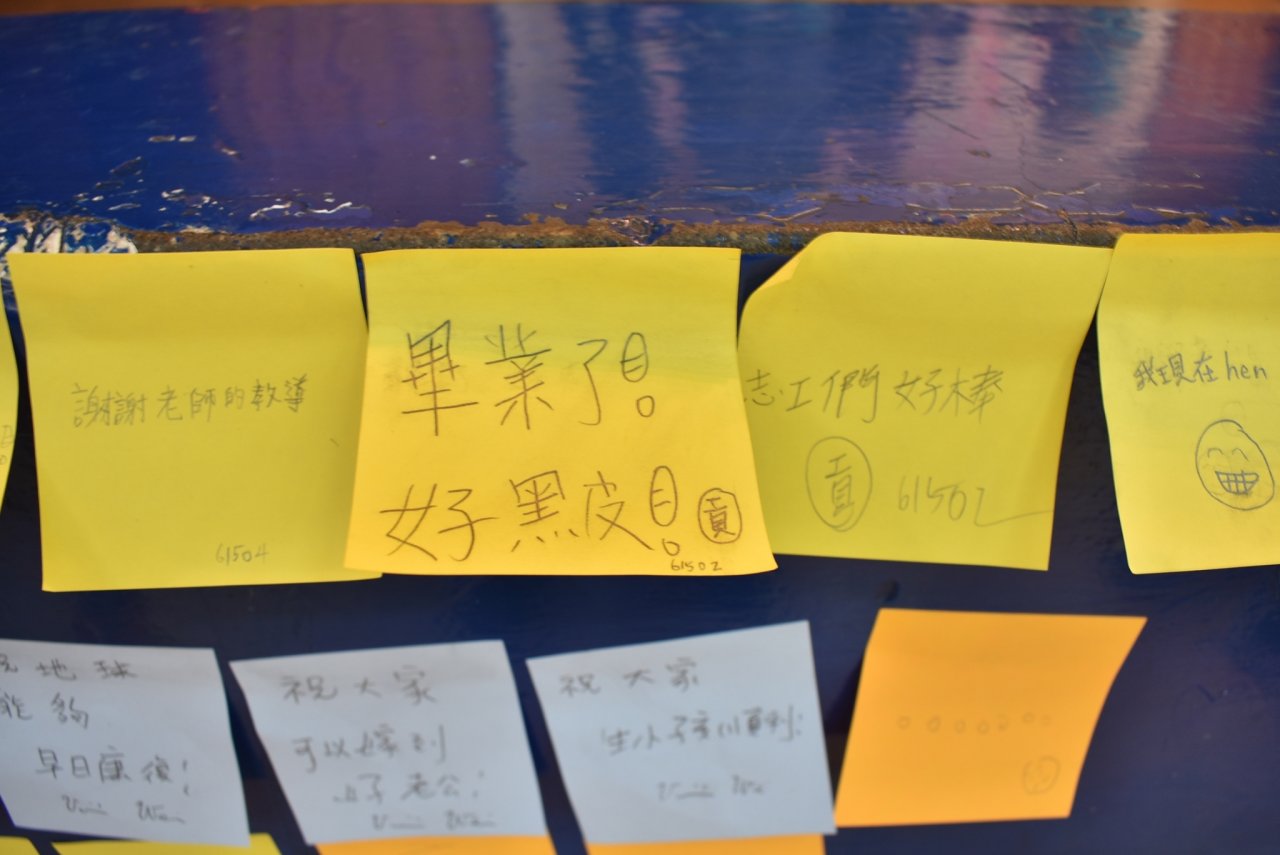 謝謝老師的教導
61504
畢業了!
好黑皮!
貢
61502
志工們好棒
貢 61502
我現在hen
地球
能夠
早日康復!
祝大家
可以嫁到
好老公!
祝大家
生小孩順利!